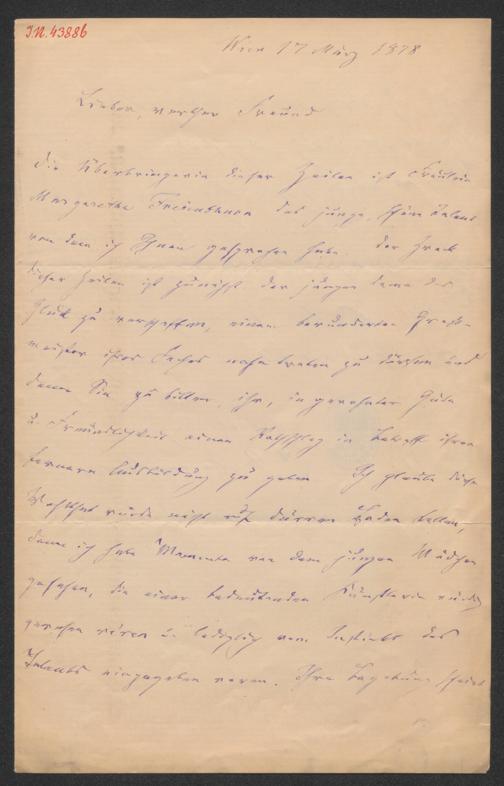 J.N. 43886
Wien 17 März 1878
Lieber, werther Freund
Die Überbringerin dieser Zeilen ist Fräulein
Margarethe das junge, schöne Talent
von dem ich Ihnen gesprochen habe. Der Zweck
dieser Zeilen ist zunächst der jungen Dame das
Glück zu verschaffen, einem bewunderten Groß-
meister ihres Faches nahe treten zu dürfen und
dann Sie zu bitten, ihr, in gewohnter Güte
u. Freundlichkeit einen Rathschlag in Betreff ihrer
ferneren Ausbildung zu geben. Ich glaube diese
Wohlthat würde nicht auf dürren Boden fallen,
denn ich habe Momente von dem jungen Mädchen
gesehen, die einer bedeutenden Künstlerin würdig
gewesen wären u. lediglich vom Instinkt des
Talents eingegeben waren. Ihre Begabung scheint